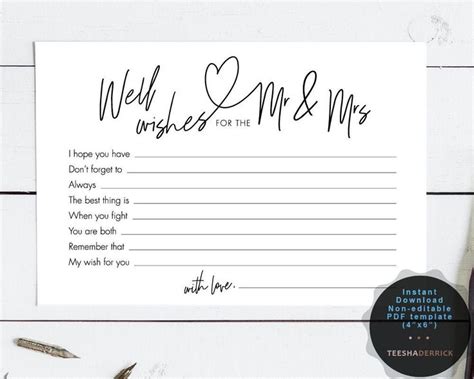 Well wishes FOR THE Mr & Mrs
I hope you have
Don't forget to
Always
The best thing is
When you fight
You are both
Remember that
My wish for you
with love,
Instant
Download
Non-editable
PDF template
(4"x6")
TEESHADERRICK